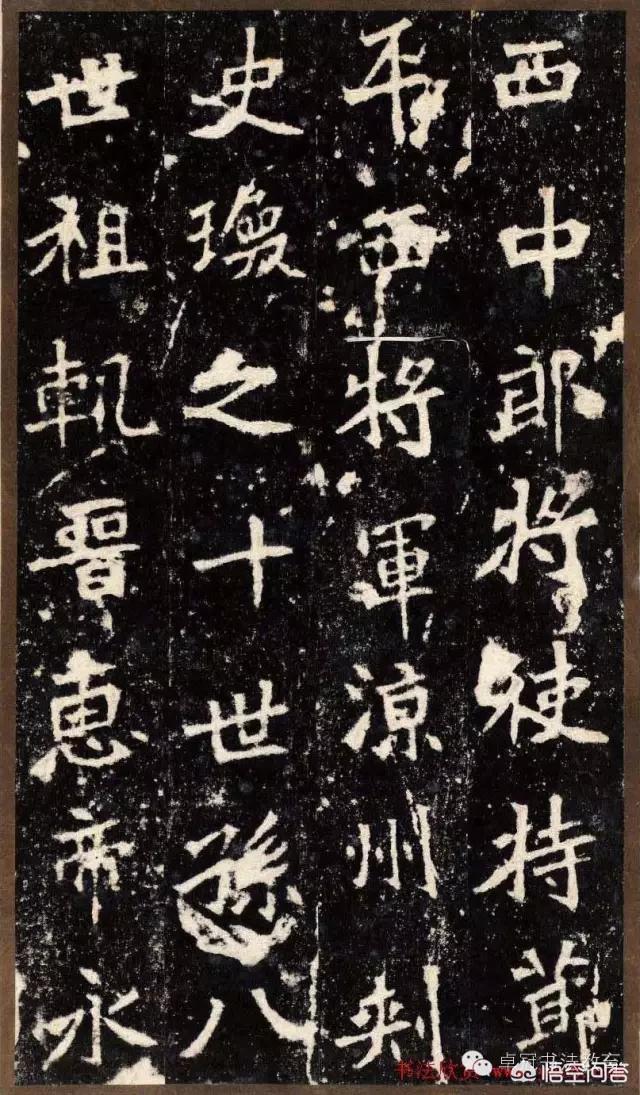 西中郎将使持節
平西将軍涼州刺
史瓊之十世孫八
世祖軌晉惠帝永
书法欣赏 www.
卓冠书法教育
悟空问答